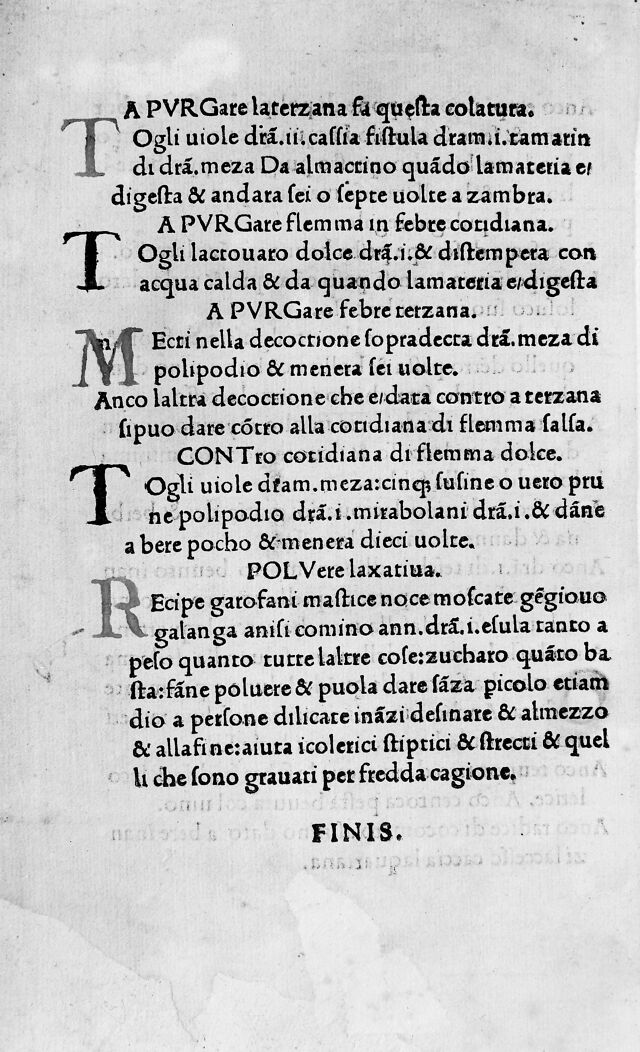 A PVRGare laterzana fa queſta colatura.
TOgli uiole drā.ii.caſſia fiſtula dram.i.tamarin
di drā.meza Da almactino quādo lamateria e/
digeſta & andara ſei o ſepte uolte a zambra.
A PVRGare flemma in febre cotidiana.
TOgli lactouaro dolce drā.i.& diſtempera con
acqua calda & da quando lamateria e/digeſta
A PVRGare febre terzana.
MEcti nella decoctione ſopradecta drā.meza di
polipodio & menera ſei uolte.
Anco laltra decoctione che e/data contro a terzana
ſipuo dare cōtro alla cotidiana di flemma ſalſa.
CONTro cotidiana di flemma dolce.
TOgli uiole dram.meza:cinqꝫ ſuſine o uero pru
ne polipodio drā.i.mirabolani drā.i.& dāne
a bere pocho & menera dieci uolte.
POLVere laxatiua.
REcipe garofani maſtice noce moſcate gēgiouo
galanga aniſi comino ann.drā.i.eſula tanto a
peſo quanto tutte laltre coſe:zucharo quāto ba
ſta:fāne poluere & puola dare ſāza picolo etiam
dio a perſone dilicate ināzi deſinare & almezzo
& allafine:aiuta icolerici ſtiptici & ſtrecti & quel
li che ſono grauati per fredda cagione.
FINIS.